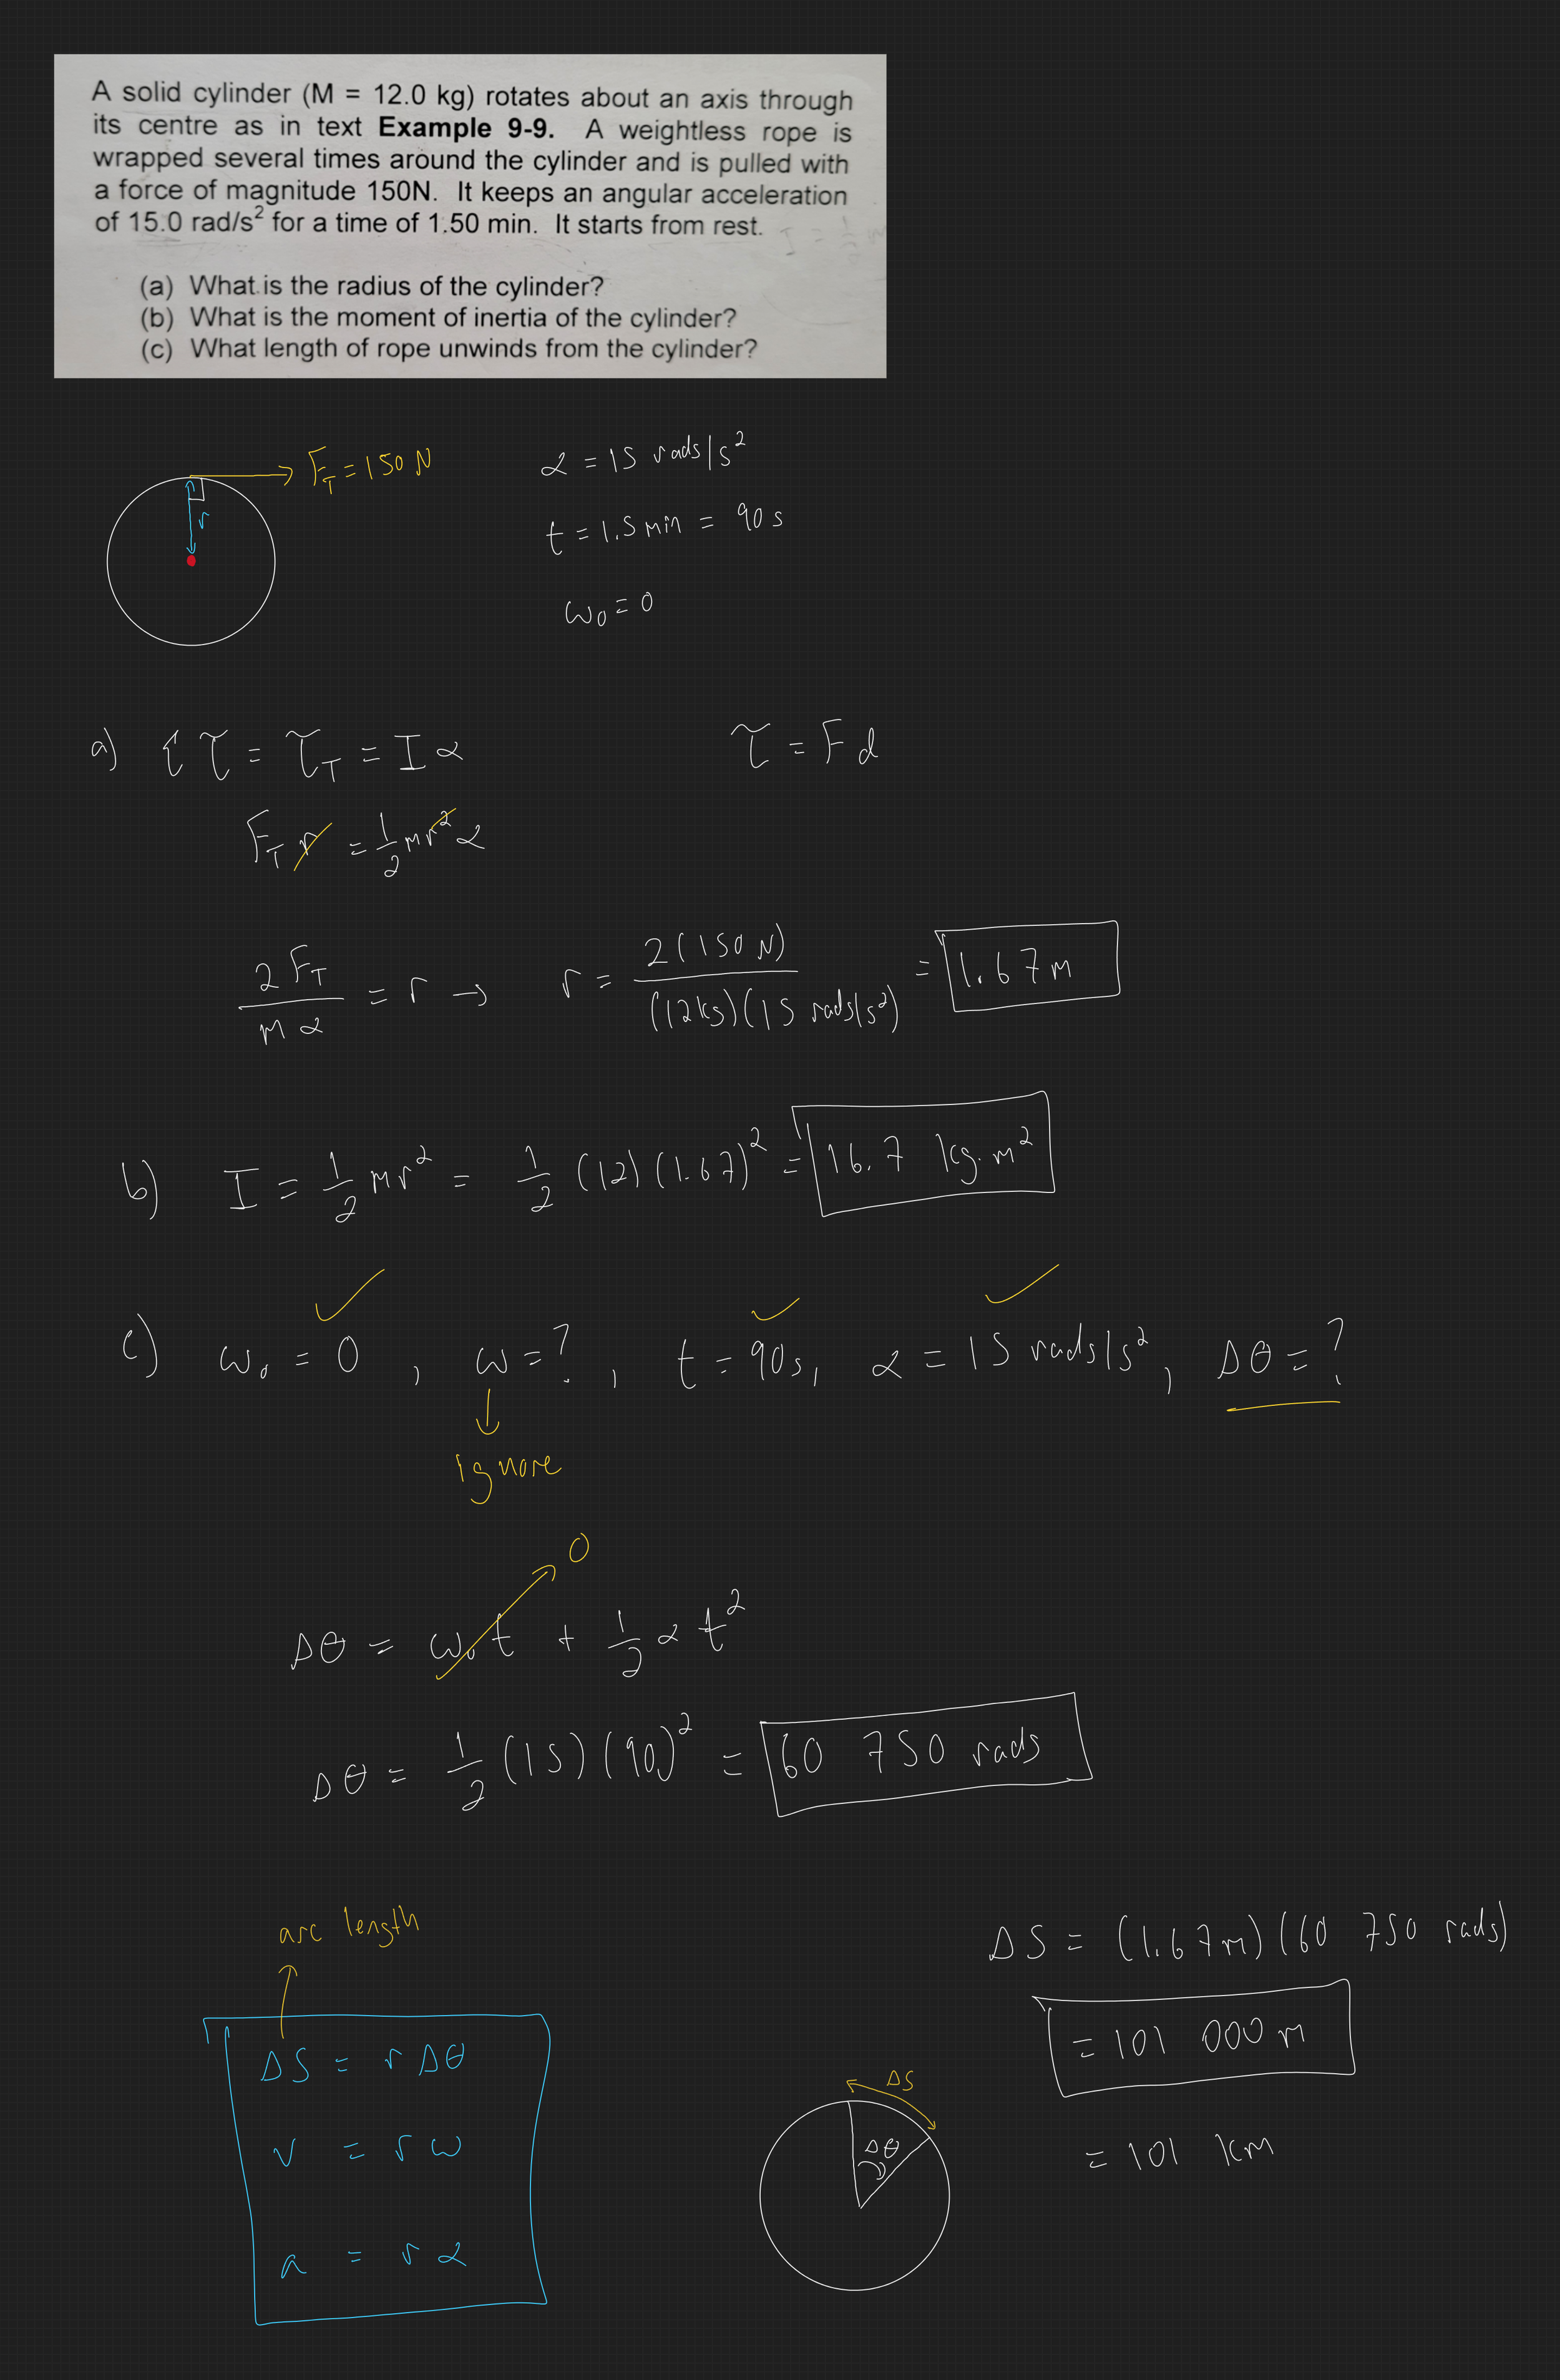 A solid cylinder (M = 12.0 kg) rotates about an axis through
its centre as in text Example 9-9. A weightless rope is
wrapped several times around the cylinder and is pulled with
a force of magnitude 150N. It keeps an angular acceleration
of 15.0 rad/s² for a time of 1.50 min. It starts from rest.
(a) What is the radius of the cylinder?
(b) What is the moment of inertia of the cylinder?
(c) What length of rope unwinds from the cylinder?
F_T = 150 N
r
α = 15 rads/s²
t = 1.5 min = 90 s
ω₀ = 0
a) Στ = τ_T = Iα
τ = Fd
F_T r = 1/2 mr²α
2F_T/mα = r → r = 2(150 N)/(12kg)(15 rads/s²) = 1.67m
b) I = 1/2 mr² = 1/2 (12)(1.67)² = 16.7 kg·m²
c) ω₀ = 0 , ω = ? , t = 90s, α = 15 rads/s², Δθ = ?
Ignore
0
Δθ = ω₀t + 1/2 αt²
Δθ = 1/2 (15)(90)² = 60 750 rads
arc length
ΔS = rΔθ
v = rω
a = rα
ΔS = (1.67m)(60 750 rads)
= 101 000 m
= 101 km
ΔS
Δθ